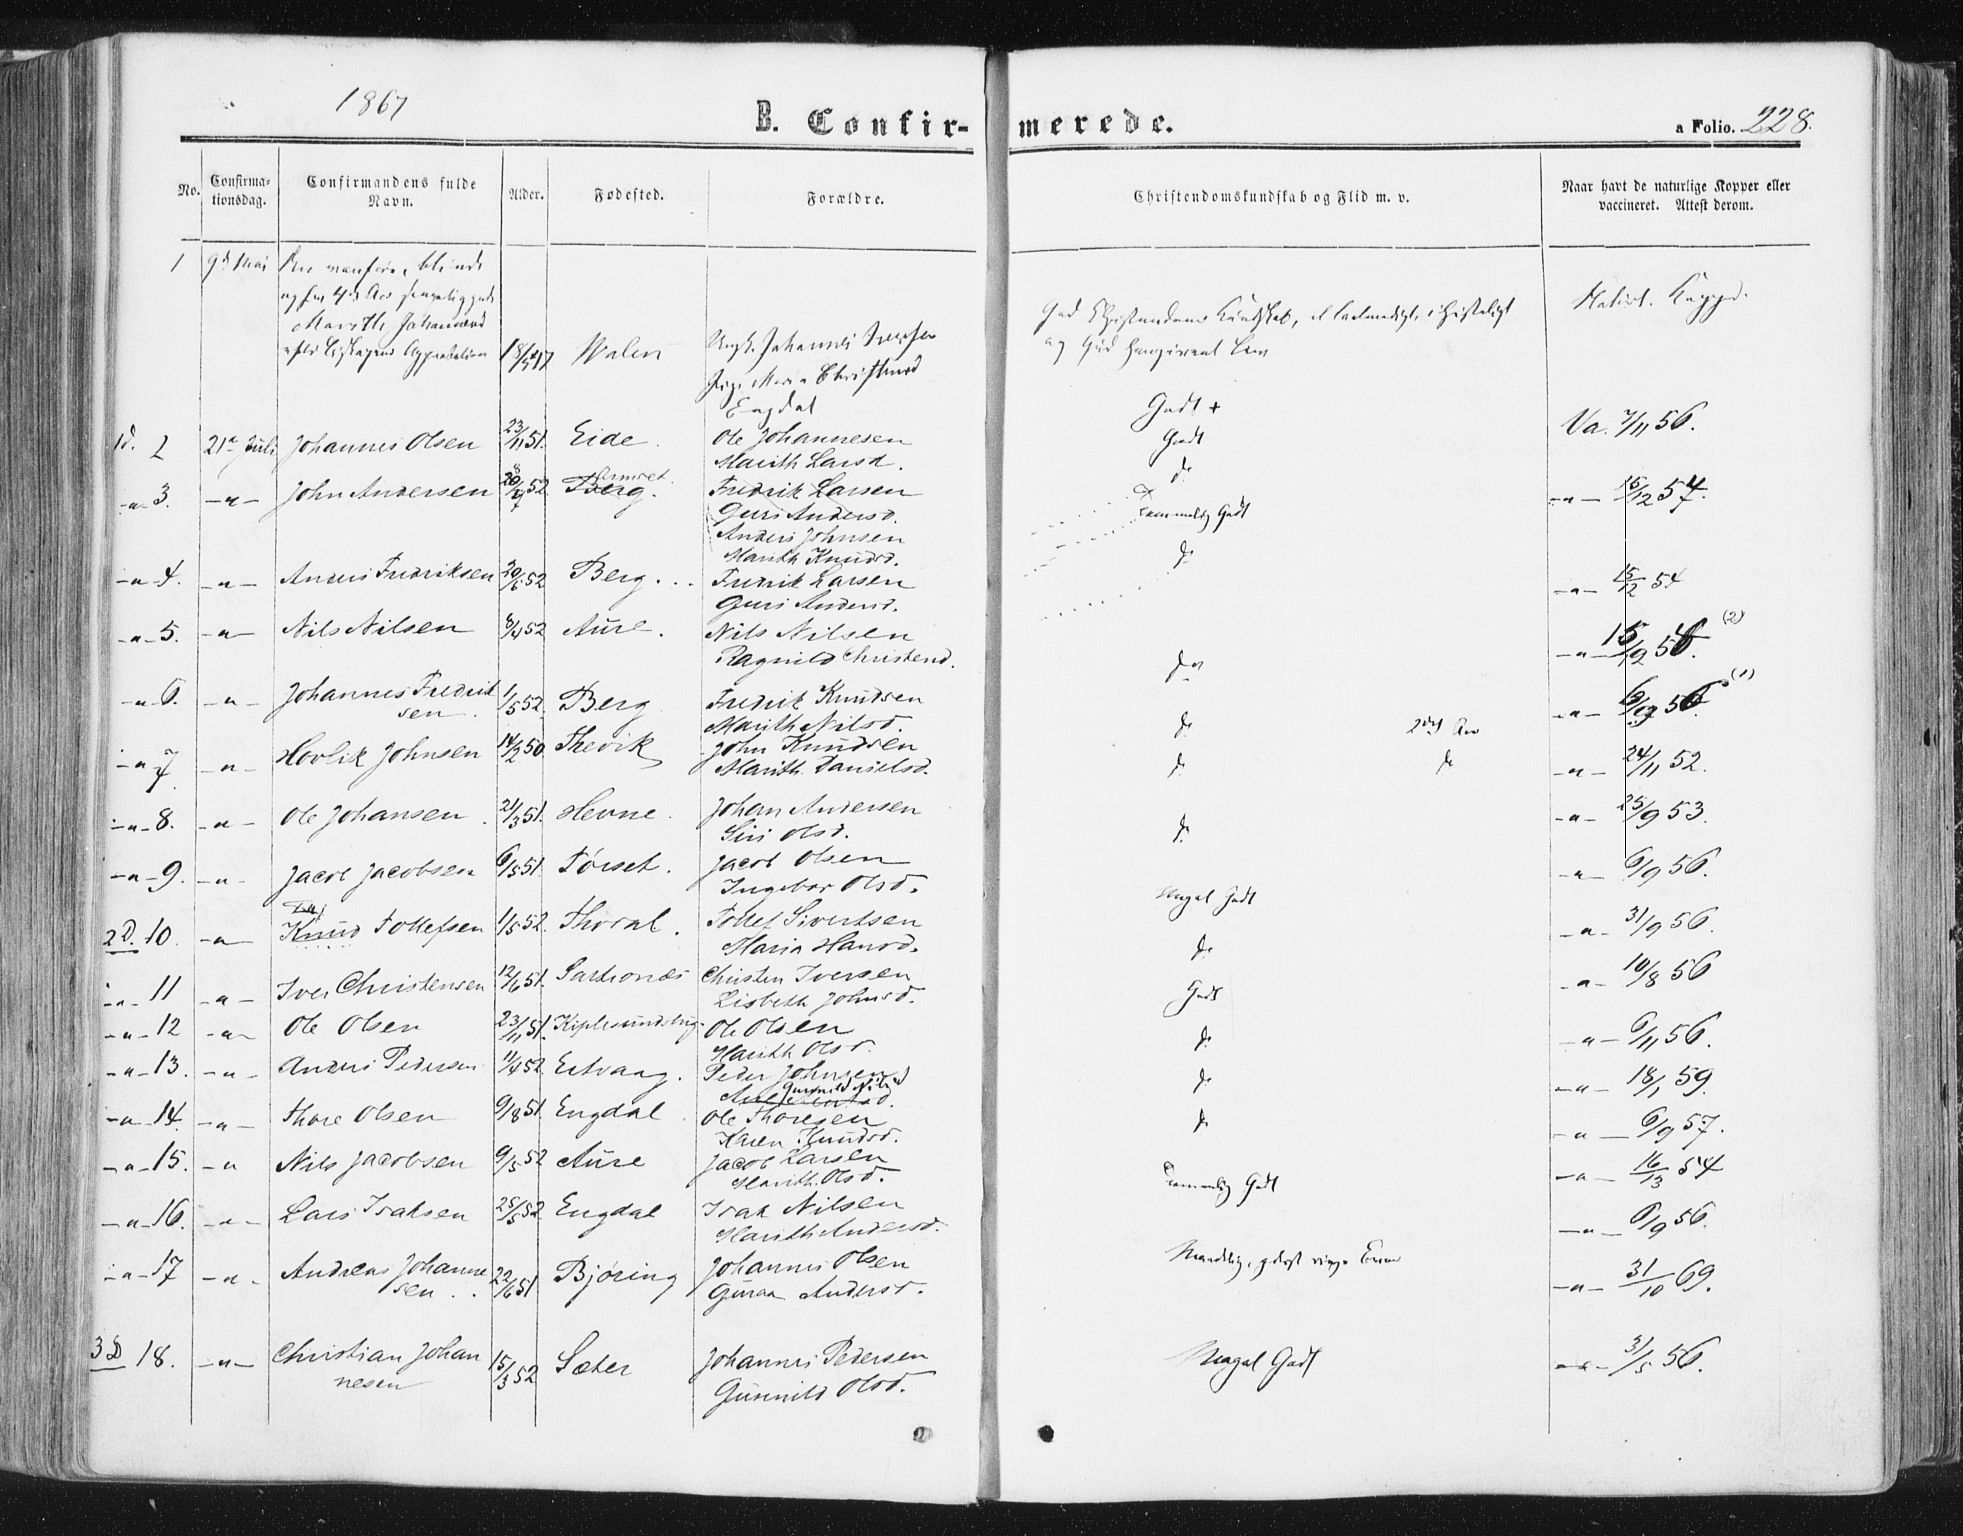 1867
B. Confirmerede.
a Folio. 228.
No. Confirmationsdag. Confirmandens fulde Navn. Alder. Fødested. Forældre. Christendomskundskab og Flid m. v. Naar havt de naturlige Kopper eller vaccineret. Attest derom.
1 9d Mai blinde
og
Marith Johannesd
Approbation
Johannes
Maria Christensd
Engdal
God Christendoms Kundskab,
og Gud
Natúrl.
1d. 2 21de Juli Johannes Olsen 23/11 51. Eide. Ole Johannesen Godt + Va. 7/11 56.
Marith Larsd. Godt
-"- 3. -"- John Andersen 52 Berg. Fredrik Larsen do -"- 15/12 57.
Guri Andersd. Temmelig Godt
Anders Johnsen
Marith Knudsd. do
-"- 4. -"- Anders Fredriksen 20/6 52 Berg. .. Fredrik Larsen -"- 15/12 54
Guri Andersd.
-"- 5. -"- Nils Nilsen 8/4 52 Aure. Nils Nilsen -"- 15/12 56. (2)
Ragnild Christend. do
-"- 6. -"- Johannes Fredrik 1/5 52. Berg Fredrik Knudsen -"- 6/9 56. (1)
sen. Marith Nilsd. do
-"- 7. -"- Hovlik Johnsen 14/2 50 Thevik John Knudsen do -"- 24/11 52.
Marith Danielsd.
-"- 8. -"- Ole Johansen 21/3 51. Hevne. Johan Andersen -"- 25/9 53.
Siri Olsd. do
-"- 9. -"- Jacob Jacobsen 6/5 51. Tørset. Jacob Olsen -"- 6/9 56.
Ingebor Olsd. Meget Godt
2D. 10. -"- Knud Tollefsen 1/5 52. Thoral. Tollef Sivertsen -"- 31/9 56.
Maria Hansd. do
-"- 11 -"- Iver Christensen 12/6 51. Christen Iversen Godt -"- 10/8 56
Lisbeth Johnsd.
-"- 12 -"- Ole Olsen 23/11 51. Ole Olsen do -"- 6/11 56.
Marith Olsd.
-"- 13. -"- Anders Pedersen 11/4 52 Estvaag. Peder Johnsen do -"- 18/1 59.
Gunnild Nilsd
-"- 14. -"- Thore Olsen 9/8 51. Engdal. Ole Thoresen do -"- 6/9 57.
Karen Knudsd.
-"- 15. -"- Nils Jacobsen 9/5 52 Aure Jacob Larsen Temmelig Godt -"- 16/13 54
Marith Olsd.
-"- 16. -"- Lars Isaksen 25/5 52 Engdal Isak Nilsen -"- 6/9 56.
Marith Andersd.
-"- 17 -"- Andreas Johanne 22/6 51 Bjøring Johannes Olsen -"- 31/10 69.
sen. . Guraa Andersd.
3D 18. -"- Christian Johan 15/3 52 Sæter Johannes Pedersen Meget Godt -"- 31/5 56.
nesen Gunnild Olsd.